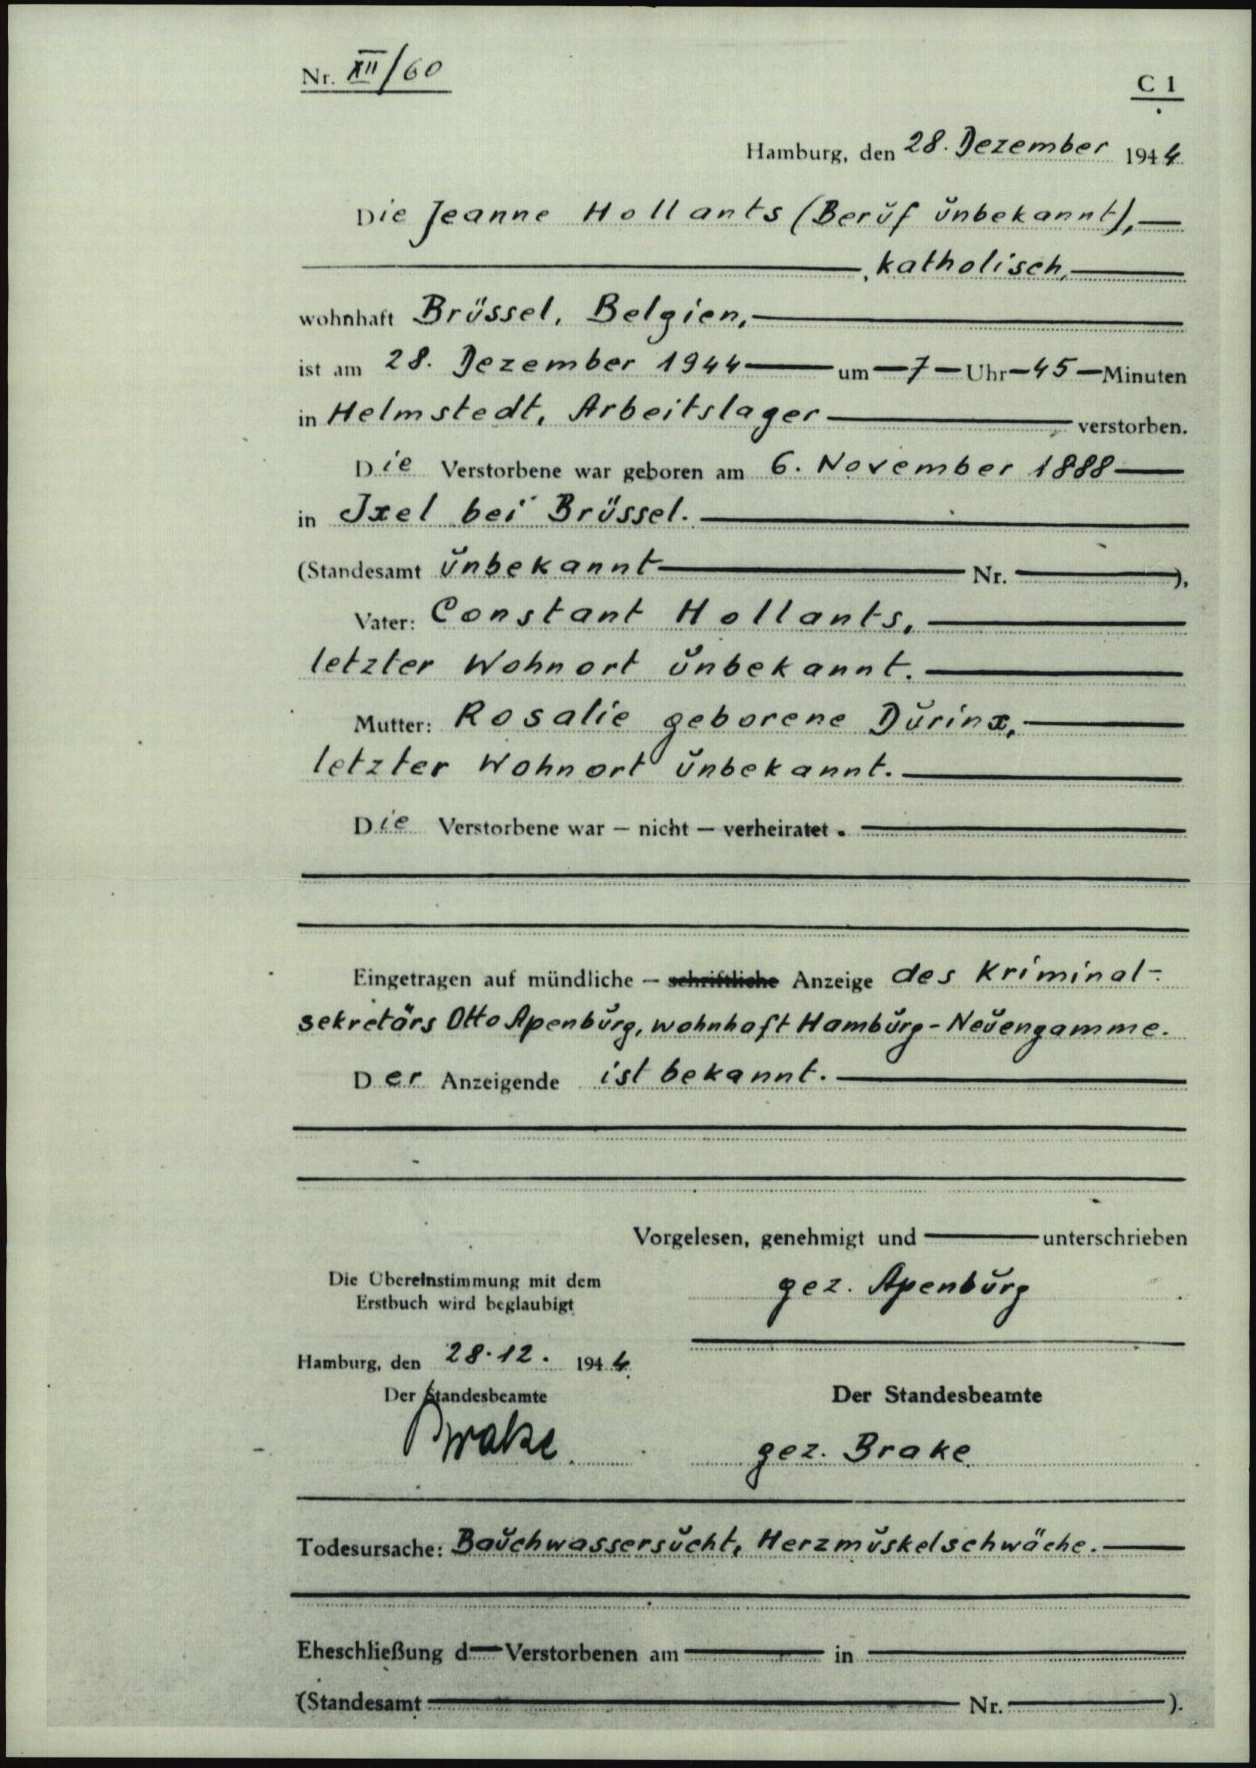 Nr. XII/60
C 1
Hamburg, den 28. Dezember 1944
Die Jeanne Hollants (Beruf unbekannt),
, katholisch,
wohnhaft Brüssel, Belgien,
ist am 28. Dezember 1944 um 7 Uhr 45 Minuten
in Helmstedt, Arbeitslager verstorben.
Die Verstorbene war geboren am 6. November 1888
in Ixel bei Brüssel.
(Standesamt unbekannt Nr. ),
Vater: Constant Hollants,
letzter Wohnort unbekannt.
Mutter: Rosalie geborene Durinx,
letzter Wohnort unbekannt.
Die Verstorbene war – nicht – verheiratet.
Eingetragen auf mündliche – schriftliche Anzeige des Kriminal-
sekretärs Otto Apenburg, wohnhaft Hamburg-Neuengamme.
Der Anzeigende ist bekannt.
Vorgelesen, genehmigt und unterschrieben
gez. Apenburg
Die Übereinstimmung mit dem
Erstbuch wird beglaubigt
Hamburg, den 28.12. 1944
Der Standesbeamte
Brake
Der Standesbeamte
gez. Brake
Todesursache: Bauchwassersucht, Herzmuskelschwäche.
Eheschließung d Verstorbenen am in
(Standesamt Nr. ).